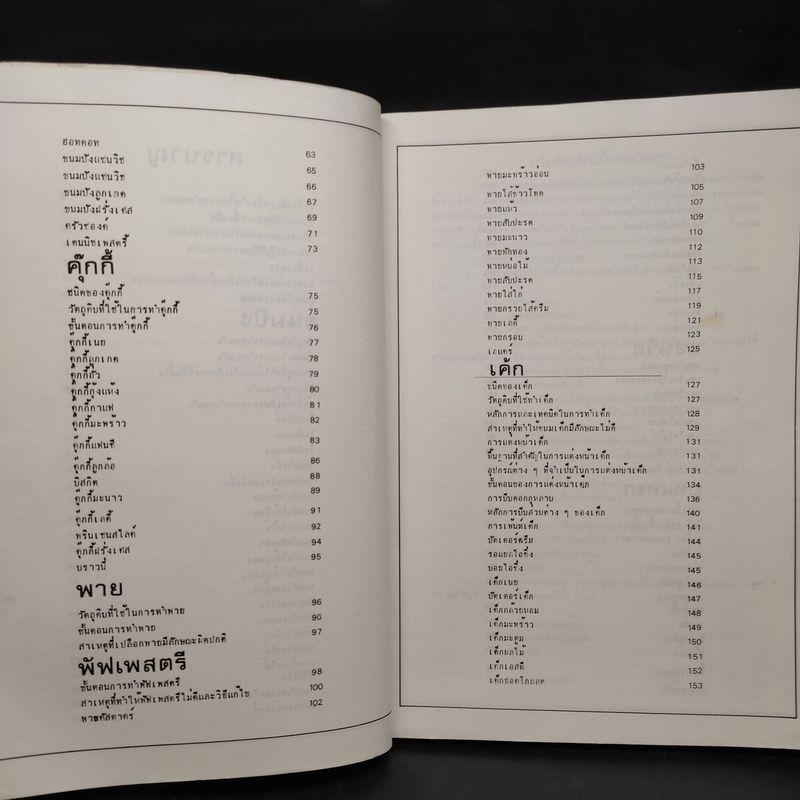 ฮอทดอท
ขนมปังแซนวิช 63
ขนมปังแซนวิช 65
ขนมปังลูกเกด 66
ขนมปังฝรั่งเศส 67
ครัวซองค์ 69
เดนนิชเพสตรี้ 71
73
คุ๊กกี้
ชนิดของคุ๊กกี้ 75
วัตถุดิบที่ใช้ในการทำคุ๊กกี้ 75
ขั้นตอนการทำคุ๊กกี้ 76
คุ๊กกี้เนย 77
คุ๊กกี้ลูกเกด 78
คุ๊กกี้ถั่ว 79
คุ๊กกี้กุ้งแห้ง 80
คุ๊กกี้กาแฟ 81
คุ๊กกี้มะพร้าว 82
คุ๊กกี้แฟนซี 83
คุ๊กกี้ลูกล้อ 86
บิสกิต 88
คุ๊กกี้มะนาว 89
คุ๊กกี้เลดี้ 91
พรินเซนสไลด์ 92
คุ๊กกี้ฝรั่งเศส 94
บราวนี่ 95
พาย
วัตถุดิบที่ใช้ในการทำพาย 96
ขั้นตอนการทำพาย 96
สาเหตุที่เปลือกพายมีลักษณะผิดปกติ 97
พัฟเพสตรี
ขั้นตอนการทำพัฟเพสตรี 98
สาเหตุที่ทำให้พัฟเพสตรีไม่ดีและวิธีแก้ไข 100
พายคัสตาตร์ 102
พายมะพร้าวอ่อน 103
พายไส้ข้าวโพด 105
พายแห้ว 107
พายสับปะรด 109
พายมะนาว 110
พายฟักทอง 112
พายหน่อไม้ 113
พายสับปะรด 115
พายไส้ไก่ 117
พายกรวยไส้ครีม 119
พายเลดี้ 121
พายกรอบ 123
เอแคร์ 125
เค้ก
ชนิดของเค้ก 127
วัตถุดิบที่ใช้ทำเค้ก 127
หลักการและเทคนิคในการทำเค้ก 128
สาเหตุที่ทำให้ขนมเค้กมีลักษณะไม่ดี 129
การแต่งหน้าเค้ก 131
พื้นฐานที่สำคัญในการแต่งหน้าเค้ก 131
อุปกรณ์ต่าง ๆ ที่จำเป็นในการแต่งหน้าเค้ก 131
ขั้นตอนของการแต่งหน้าเค้ก 134
การบีบดอกกุหลาบ 136
หลักการบีบส่วนต่าง ๆ ของเค้ก 140
การเพ้นท์เค้ก 141
บัตเตอร์ครีม 144
รอแยลไอซิ่ง 145
บอยไอซิ่ง 145
เค้กเนย 146
บัตเตอร์เค้ก 147
เค้กกล้วยหอม 148
เค้กมะพร้าว 149
เค้กมะตูม 150
เค้กผลไม้ 151
เค้กเอสพี 152
เค้กชอคโกแลต 153